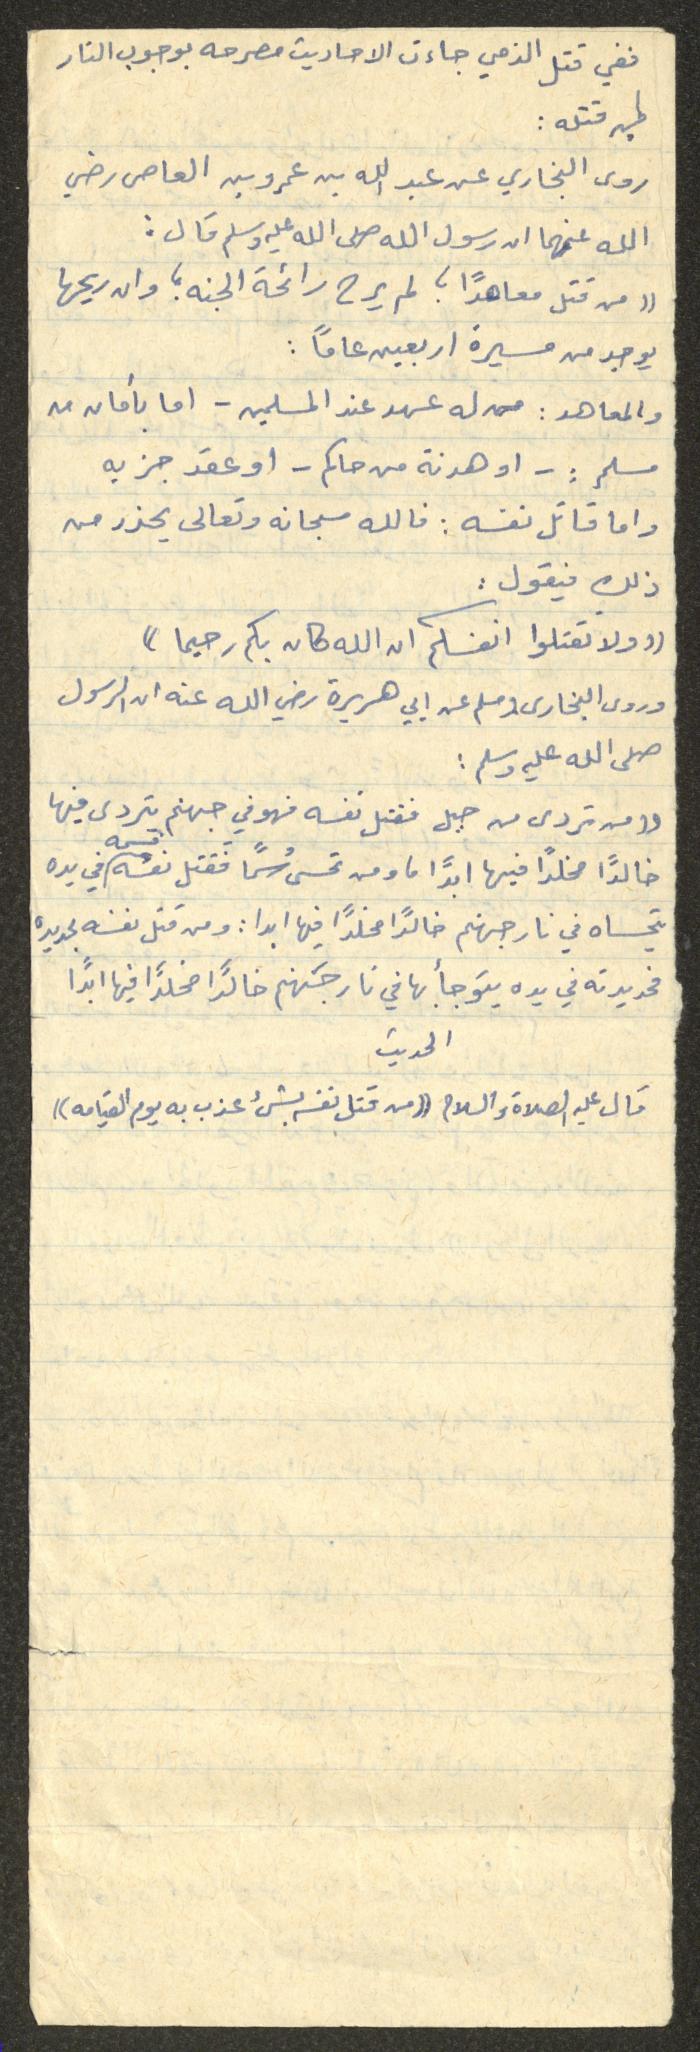 ففي قتل الذمي جاءت الاحاديث مصرحه بوجوب النار
لمن قتله :
روى البخاري عن عبد الله بن عمرو بن العاص رضي
الله عنهما ان رسول الله صلى الله عليه وسلم قال :
(( من قتل معاهدًا ؛ لم يرح رائحة الجنه ؛ وان ريحها
يوجد من مسيرة اربعين عامًا :
والمعاهد : من له عهد عند المسلمين - اما بأمان من
مسلم : - او هدنة من حاكم - او عقد جزيه
واما قاتل نفسه : فالله سبحانه وتعالى يحذر من
ذلك فيقول :
(( ولا تقتلوا انفسكم ان الله كان بكم رحيما ))
وروى البخارى ومسلم عن ابي هريرة رضي الله عنه ان الرسول
صلى الله عليه وسلم :
(( من تردى من جبل فقتل نفسه فهو في جهنم يتردى فيها
خالدًا مخلدًا فيها ابدًا ، ومن تحسى سُمًا فَقتل نفسه فسمه في يده
يتحساه في نار جهنم خالدًا مخلدًا فيها ابدا : ومن قتل نفسه بحديده
فحديدته في يده يتوجأ بها في نار جهنم خالدًا مخلدًا فيها ابدًا
الحديث
قال عليه الصلاة والسلام (( من قتل نفسه بشئ عذب به يوم القيامه ))